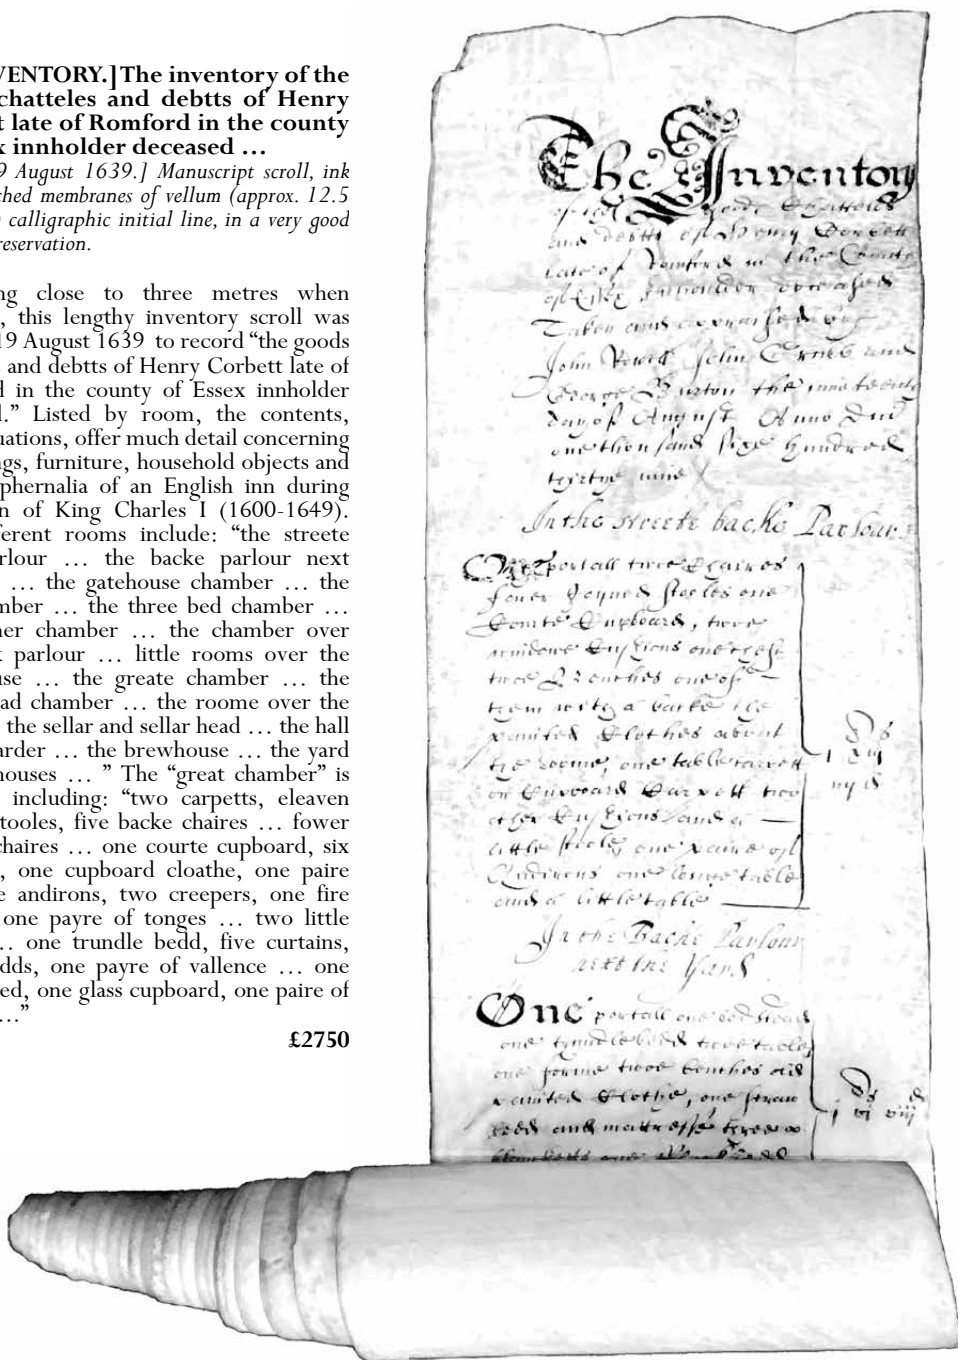 VENTORY.] The inventory of the
chatteles and debtts of Henry
t late of Romford in the county
x innholder deceased …
9 August 1639.] Manuscript scroll, ink
ched membranes of vellum (approx. 12.5
calligraphic initial line, in a very good
reservation.
ng close to three metres when
, this lengthy inventory scroll was
19 August 1639 to record “the goods
and debtts of Henry Corbett late of
d in the county of Essex innholder
l.” Listed by room, the contents,
uations, offer much detail concerning
ngs, furniture, household objects and
phernalia of an English inn during
n of King Charles I (1600-1649).
ferent rooms include: “the streete
rlour … the backe parlour next
… the gatehouse chamber … the
mber … the three bed chamber …
ner chamber … the chamber over
k parlour … little rooms over the
use … the greate chamber … the
ad chamber … the roome over the
the sellar and sellar head … the hall
arder … the brewhouse … the yard
houses … ” The “great chamber” is
including: “two carpetts, eleaven
tooles, five backe chaires … fower
chaires … one courte cupboard, six
, one cupboard cloathe, one paire
e andirons, two creepers, one fire
one payre of tonges … two little
.. one trundle bedd, five curtains,
dds, one payre of vallence … one
ed, one glass cupboard, one paire of
…”
£2750
The Inventory
of the Goods Chattells
and debtts of Henry Corbett
late of Romford in the County
of Essex Innholder deceased
Taken and apprased by
John and
George Burton the nineteenth
day of August Anno Dni
one thousand sixe hundred
thirtye nine
In the streete backe Parlour
One portall twoe Chaires
fower Joyned stooles one
Courte Cupboard, twoe
windowe Cushions one
twoe Benches one of
them with a backe the
painted Clothes about
the roome, one table carpett
on Cupboard Carpett two
other Cushions and a
little stoole, one paire of
Andirons one longe table
and a little table
In the Backe Parlour
next the Yard
One portall one bedstead
one trundle bedd twoe tables
one forme twoe benches old
painted Clothe, one straw
bedd and mattresse three
blanketts one